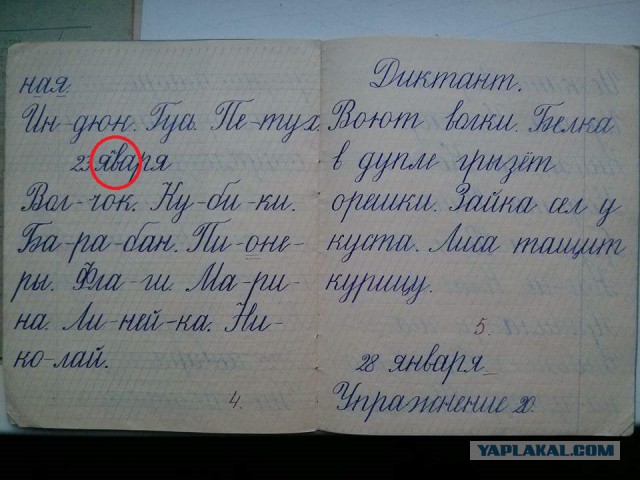 ная.
Ин-дюк. Гусь. Пе-тух.
23 яваря
Вол-чок. Ку-би-ки.
Ба-ра-бан. Пи-оне-
ры. Фла-ги. Ма-ри-
на. Ли-ней-ка. Ни-
ко-лай.
4.
Диктант.
Воют волки. Белка
в дупле грызёт
орешки. Зайка сел у
куста. Лиса тащит
курицу.
5.
28 января
Упражнение 20.
YAPLAKAL.COM